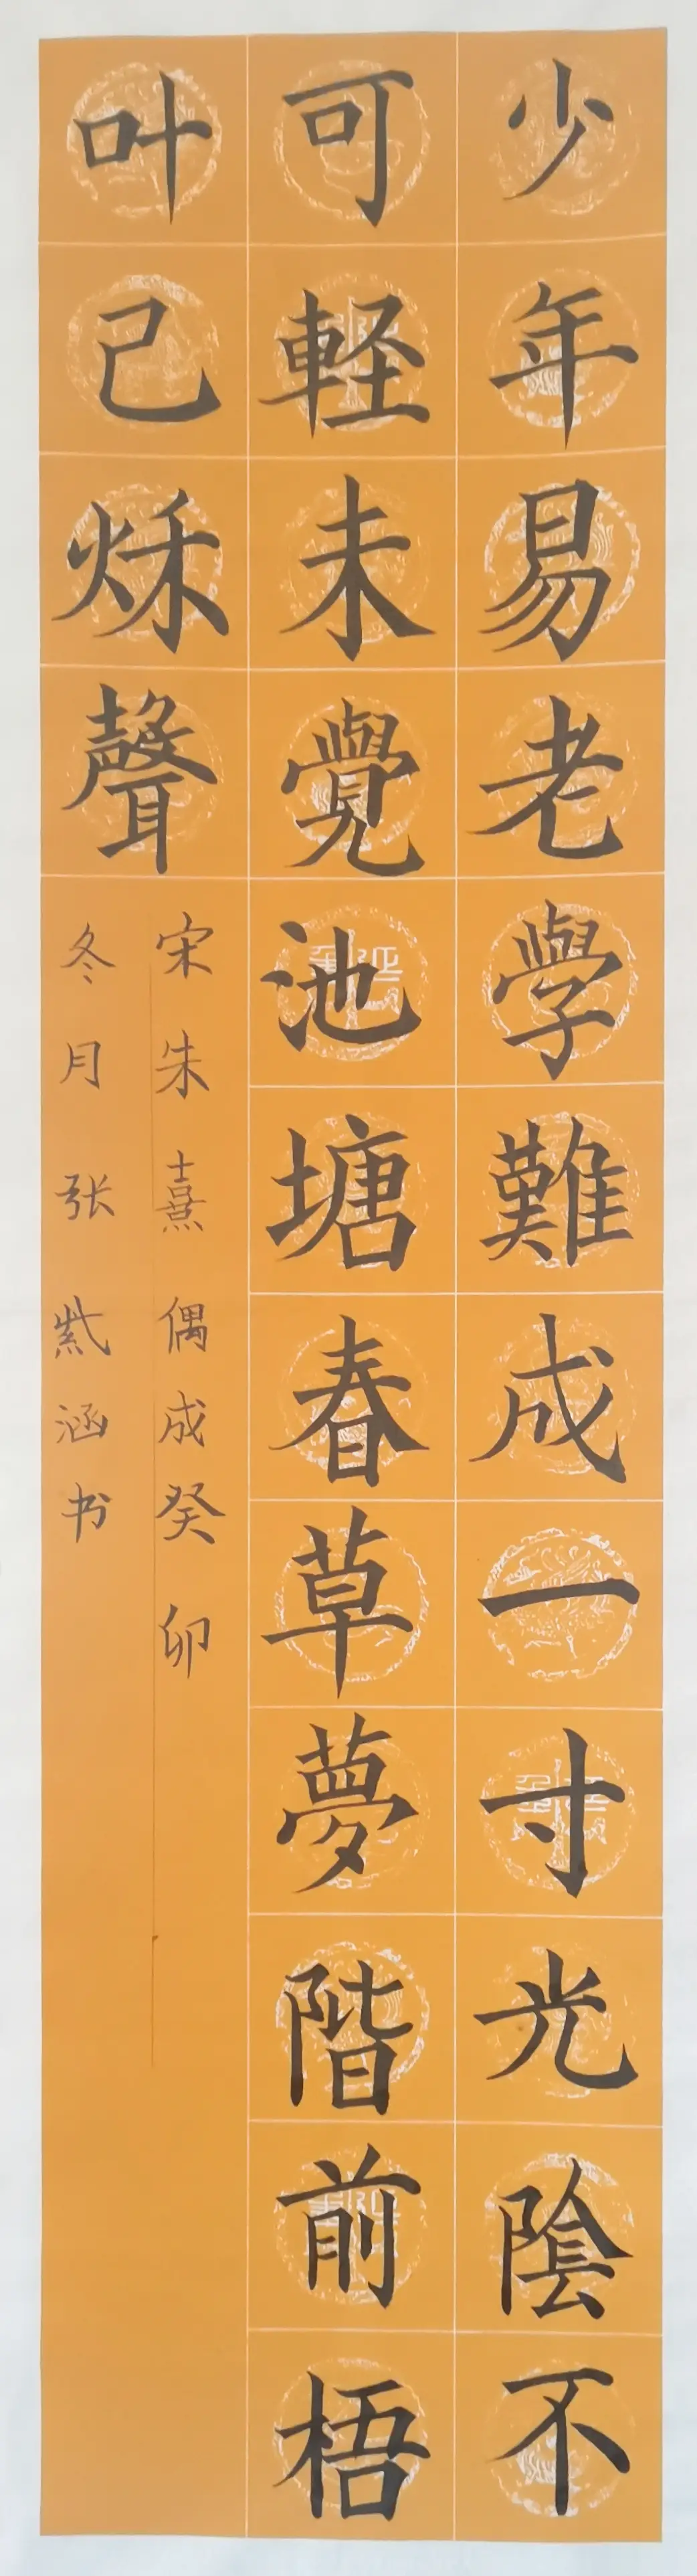 少年易老學難成一寸光陰不
可軽未覺池塘春草夢階前梧
叶己秌聲
宋朱熹偶成癸卯
冬月张紫涵书